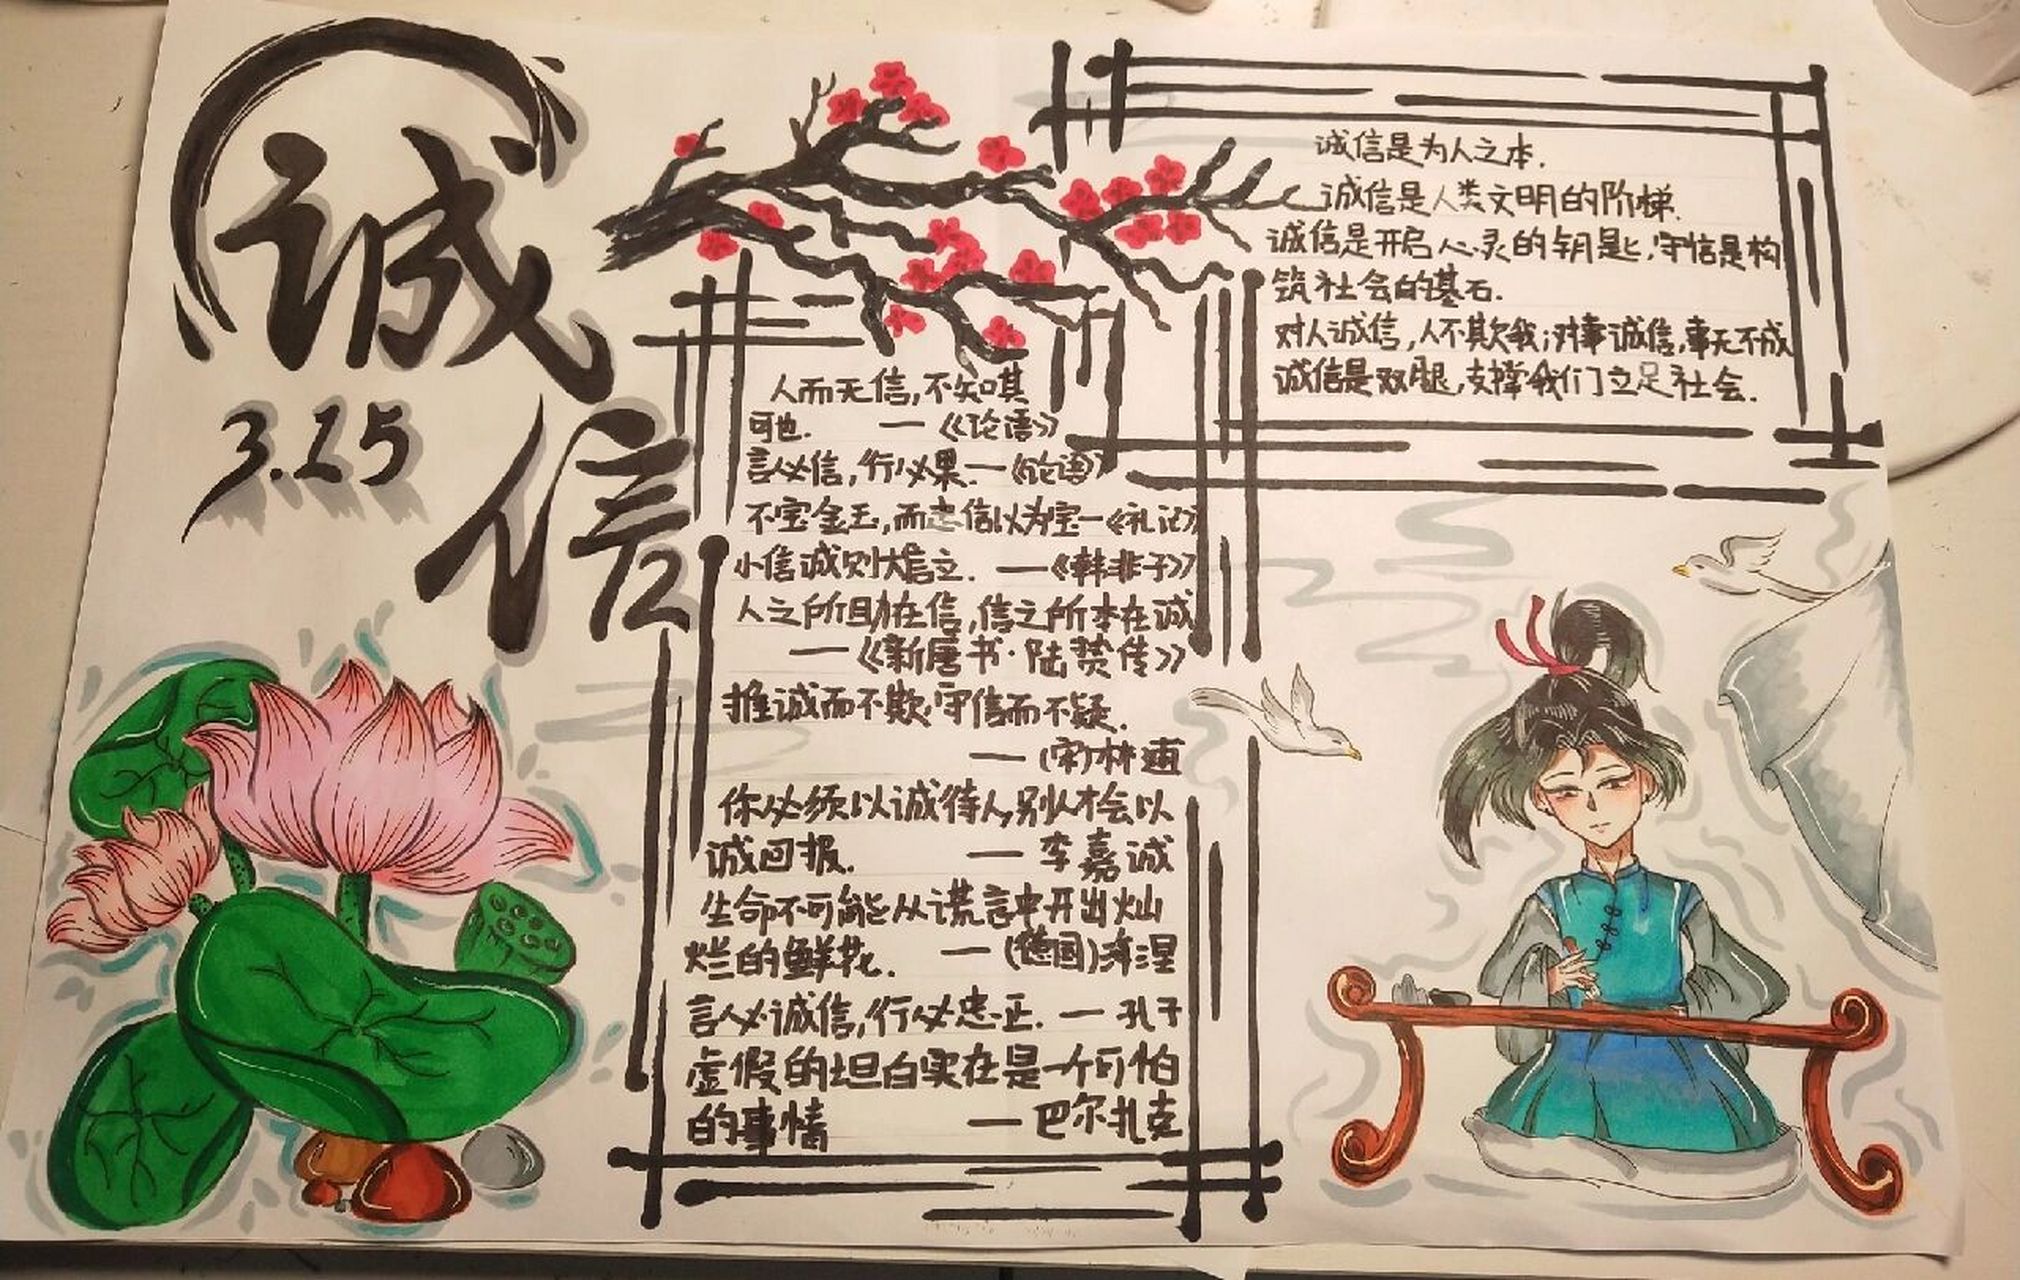 诚信
3.15
诚信是为人之本.
诚信是人类文明的阶梯.
诚信是开启心灵的钥匙,守信是构
筑社会的基石.
对人诚信,人不欺我;对事诚信,事无不成
诚信是双腿,支撑我们立足社会.
人而无信,不知其
可也. —《论语》
言必信,行必果.—《论语》
不宝金玉,而忠信以为宝—《礼记》
小信诚则大信立. —《韩非子》
人之所助在信,信之所本在诚
—《新唐书·陆贽传》
推诚而不欺,守信而不疑.
—(宋)林逋
你必须以诚待人,别人才会以
诚回报. — 李嘉诚
生命不可能从谎言中开出灿
烂的鲜花. —(德国)海涅
言必诚信,行必忠正. — 孔子
虚假的坦白实在是一个可怕
的事情 — 巴尔扎克